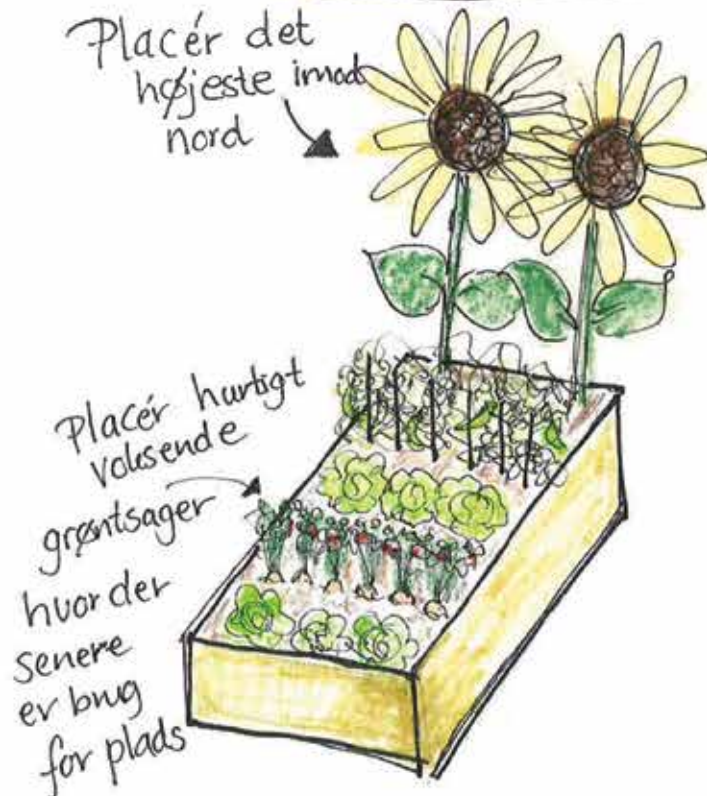 Placér det
højeste imod
nord
Placér hurtigt
voksende
grøntsager
hvor der
senere
er brug
for plads